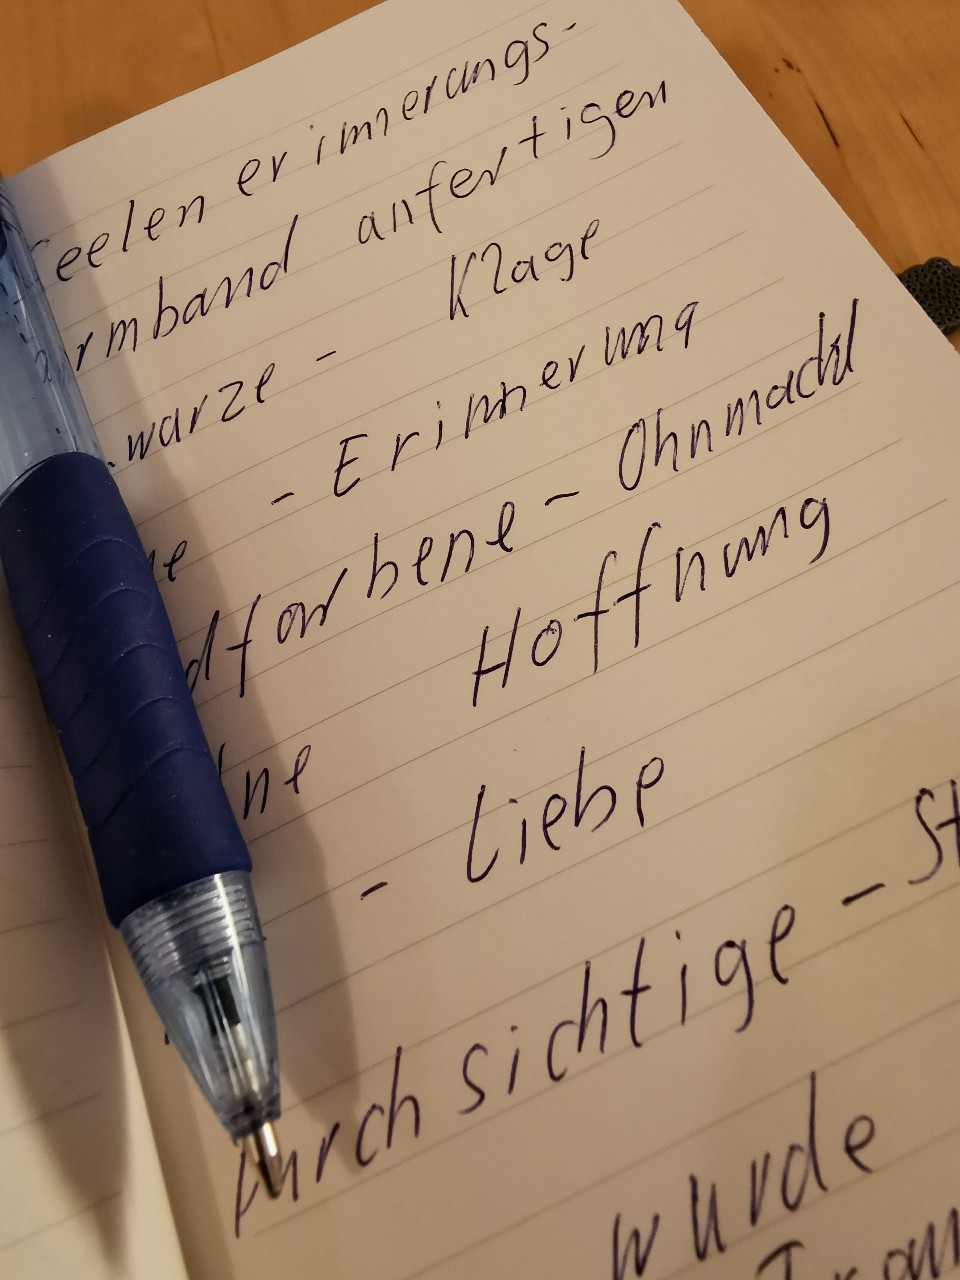 Seelen erinnerungs-
armband anfertigen
warze - Klage
- Erinnerung
dfarbene - Ohnmacht
ne Hoffnung
- Liebe
durchsichtige - St
wurde